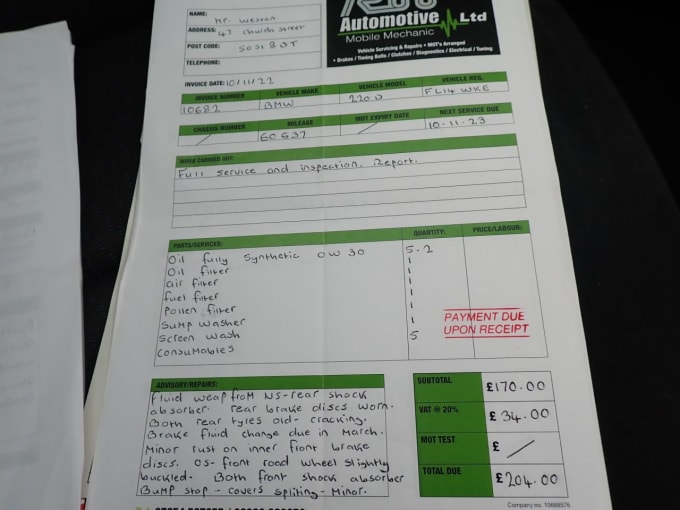 Automotive Ltd
Mobile Mechanic
Vehicle Servicing & Repairs • MOT's Arranged
• Brakes / Timing Belts / Clutches / Diagnostics / Electrical / Tuning
NAME: Mr Weston
ADDRESS: 47 Church Street
POST CODE: SO51 8JT
TELEPHONE:
INVOICE DATE: 10/11/22
INVOICE NUMBER VEHICLE MAKE VEHICLE MODEL VEHICLE REG.
10682 BMW 220D FL14 WKE
CHASSIS NUMBER MILEAGE MOT EXPIRY DATE NEXT SERVICE DUE
/ 60537 / 10-11-23
WORK CARRIED OUT:
Full service and inspection. Report.
PARTS/SERVICES: QUANTITY: PRICE/LABOUR:
Oil fully synthetic 0W30 5.2
Oil filter 1
air filter 1
fuel filter 1
Pollen filter 1
Sump washer 1
Screen wash 5
Consumables
PAYMENT DUE
UPON RECEIPT
ADVISORY/REPAIRS:
Fluid weap from NS-rear shock
absorber. rear brake discs worn.
Both rear tyres old- cracking.
Brake fluid change due in March.
Minor rust on inner front brake
discs. OS-front road wheel slightly
buckled. Both front shock absorber
Bump stop - covers spliting - Minor.
SUBTOTAL £170.00
VAT @ 20% £34.00
MOT TEST £ /
TOTAL DUE £204.00
Company no: